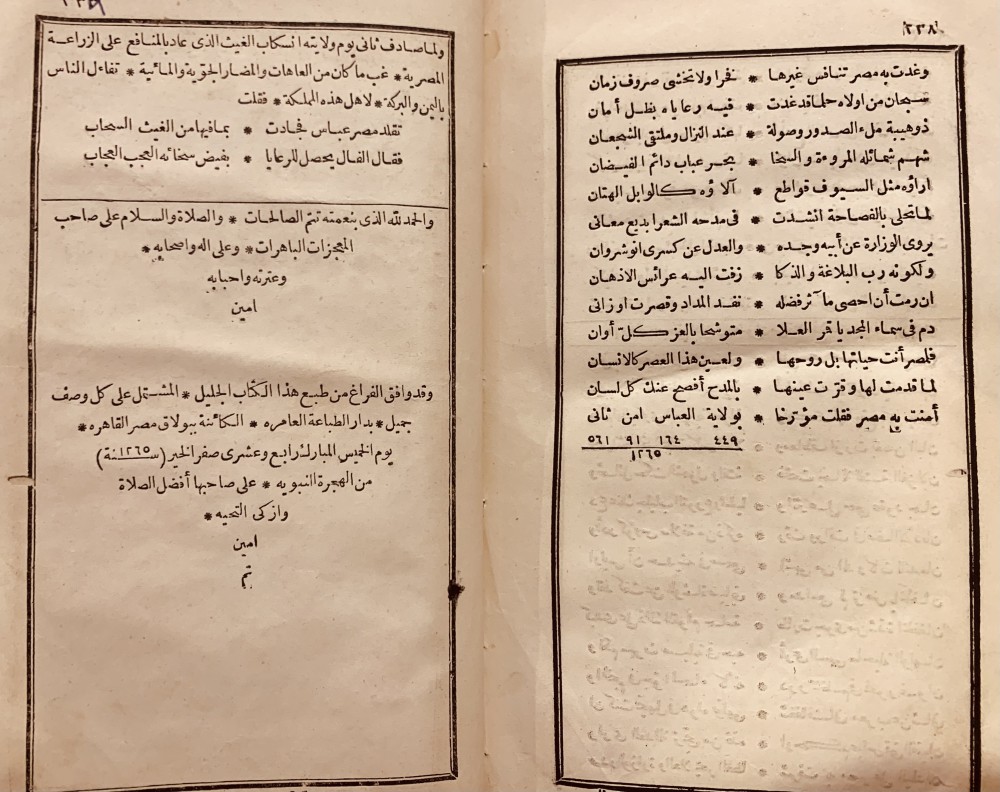 ٢٣٨
وغدت به مصر تنافس غيرها * فخرا ولا تخشى صروف زمان
سبحان من اولاه حلما قد غدت * فيه رعاياه بظل أمان
ذو هيبة ملء الصدور وصولة * عند النزال وملتقى الشجعان
شهم شمائله المروءة والسخا * بحر عباب دائم الفيضان
اراؤه مثل السيوف قواطع * آلاؤه كالوابل الهتان
لما تحلى بالفصاحة انشدت * فى مدحه الشعرا بديع معانى
يروى الوزارة عن أبيه وجده * والعدل عن كسرى انوشروان
ولكونه رب البلاغة والذكا * زفت اليه عرائس الاذهان
ان رمت أن احصى مآثر فضله * نفد المداد وقصرت اوزانى
دم فى سماء المجد يا قمر العلا * متوشحا بالعز كل أوان
فلمصر أنت حياتها بل روحها * ولعين هذا العصر كالانسان
لما قدمت لها وقرت عينها * بالمدح أفصح عنك كل لسان
أمنت به مصر فقلت مؤرخا * بولاية العباس امن ثانى
٤٤٩ ١٦٤ ٩١ ٥٦١
١٢٦٥
٢٣٩
ولما صادف ثانى يوم ولايته انسكاب الغيث الذى عاد بالمنافع على الزراعة
المصرية * غب ما كان من العاهات والمضار الجوية والمائية * تفاءل الناس
باليمن والبركة * لاهل هذه المملكة * فقلت
تقلد مصر عباس فجادت * بما فيها من الغيث السحاب
فقال الفال يحصل للرعايا * بفيض سخائه العجب العجاب
والحمد لله الذى بنعمته تتم الصالحات * والصلاة والسلام على صاحب
المعجزات الباهرات * وعلى اله واصحابه *
وعترته واحبابه
امين
وقد وافق الفراغ من طبع هذا الكتاب الجليل * المشتمل على كل وصف
جميل * بدار الطباعة العامره * الكائنة ببولاق مصر القاهره *
يوم الخميس المبارك رابع وعشرى صفر الخير (سنة ١٢٦٥)
من الهجرة النبويه * على صاحبها أفضل الصلاة
وازكى التحيه *
امين
تم